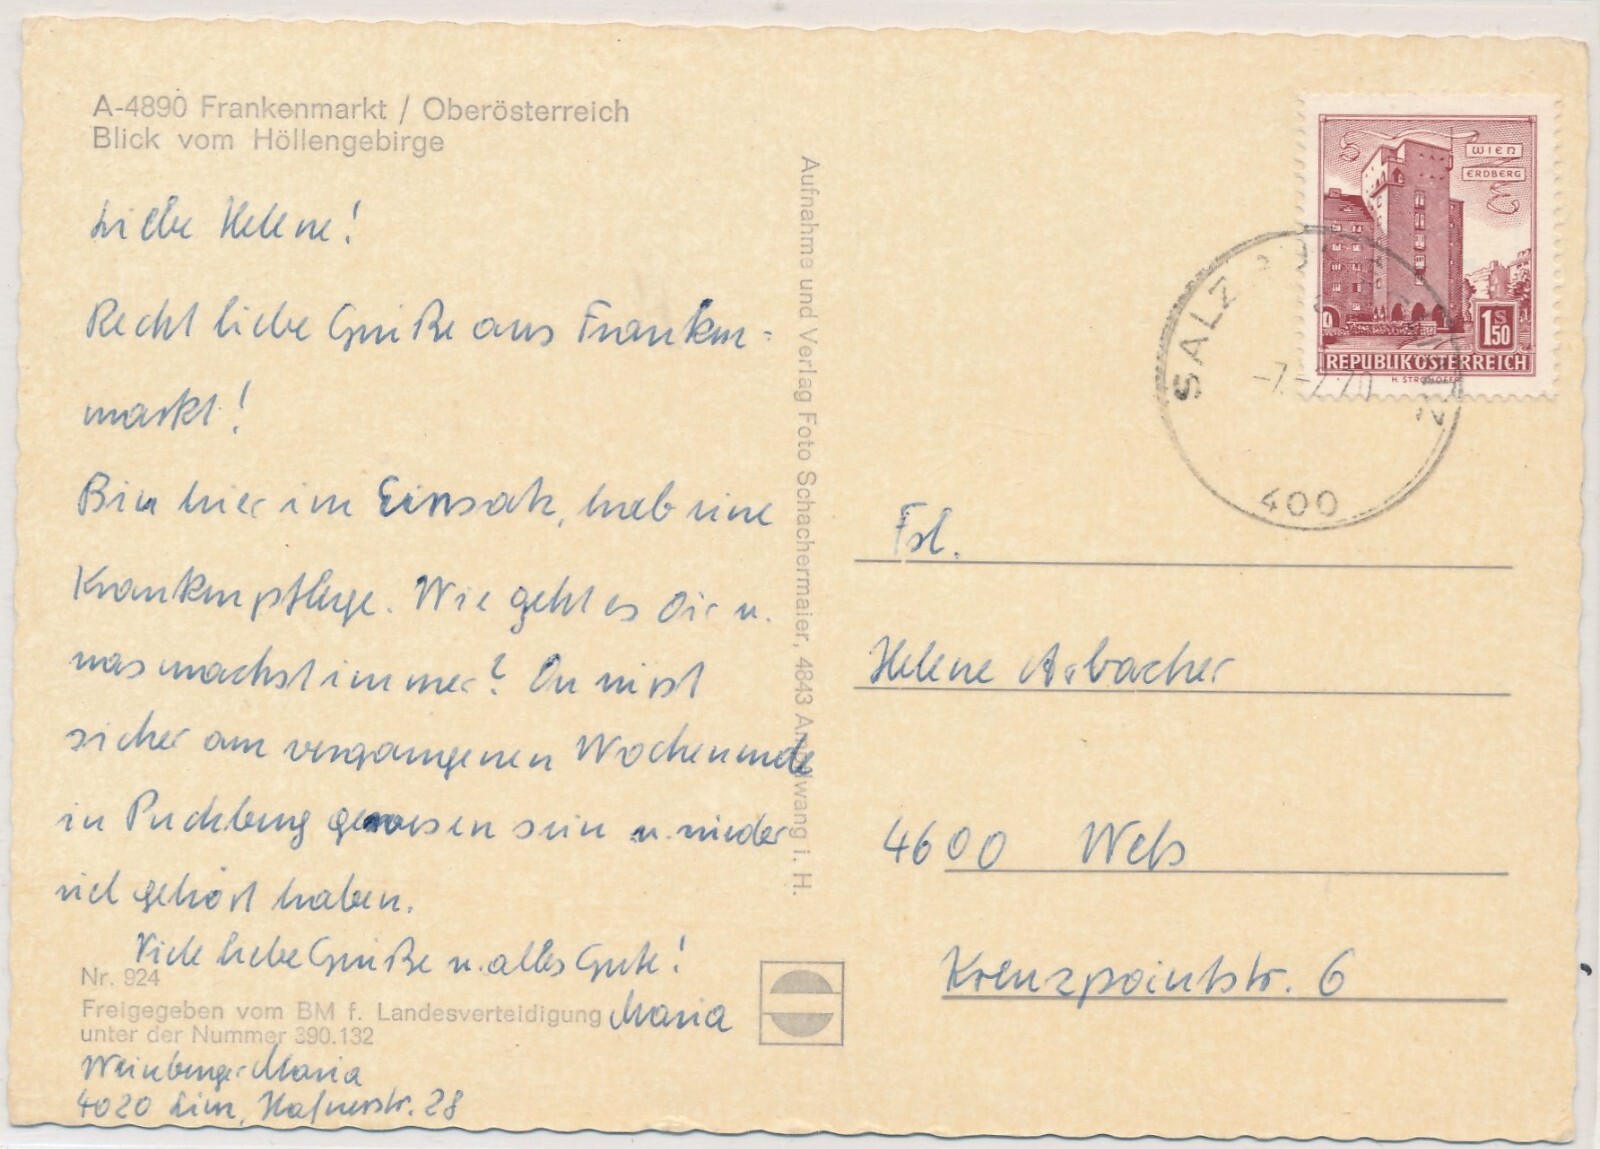 A-4890 Frankenmarkt / Oberösterreich
Blick vom Höllengebirge
Liebe Helene!
Recht liebe Grüße aus Franken-
markt!
Bin hier im Einsatz, hab eine
Krankenpflege. Wie geht es Dir u.
was machst immer? Du wirst
sicher am vergangenen Wochenende
in Puchberg gewesen sein u. wieder
viel gehört haben.
Viele liebe Grüße u. alles Gute!
Maria
Nr. 924
Freigegeben vom BM f. Landesverteidigung
unter der Nummer 390.132
Weinberger Maria
4020 Linz, Hafnerstr. 28
Aufnahme und Verlag Foto Schachermaier, 4843 Ampflwang i. H.
WIEN
ERDBERG
1S50
REPUBLIK ÖSTERREICH
400
Frl.
Helene Asbacher
4600 Wels
Kreuzpointstr. 6